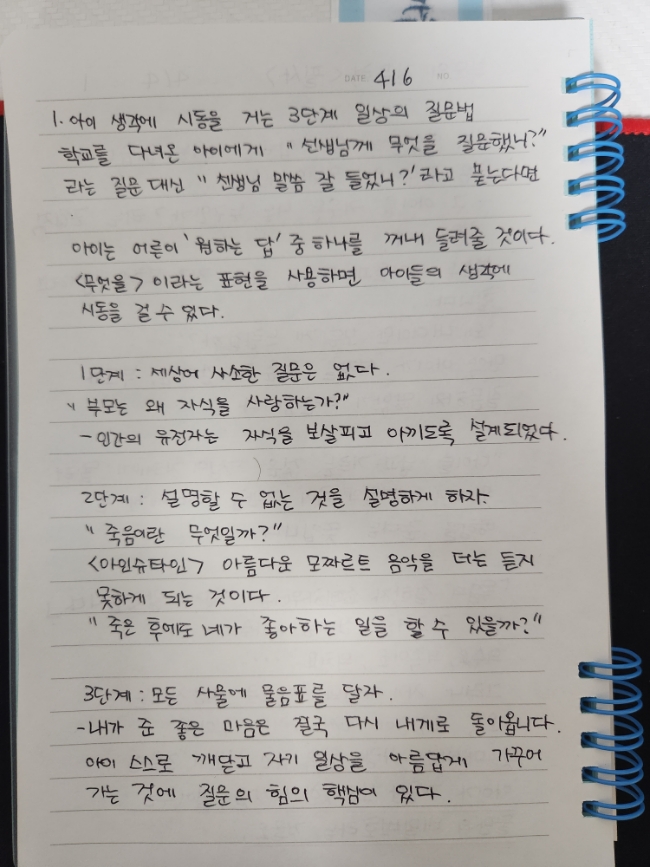 DATE 416 NO
1. 아이 생각에 시동을 거는 3단계 일상의 질문법
학교를 다녀온 아이에게 "선생님께 무엇을 질문했니?"
라는 질문 대신 "선생님 말씀 잘 들었니?'라고 묻는다면
아이는 어른이 '원하는 답' 중 하나를 꺼내 들려줄 것이다.
<무엇을> 이라는 표현을 사용하면 아이들의 생각에
시동을 걸 수 있다.
1단계 : 세상에 사소한 질문은 없다.
"부모는 왜 자식을 사랑하는가?"
- 인간의 유전자는 자식을 보살피고 아끼도록 설계되었다.
2단계 : 설명할 수 없는 것을 설명하게 하자.
"죽음이란 무엇일까?"
<아인슈타인> 아름다운 모짜르트 음악을 더는 듣지
못하게 되는 것이다.
"죽은 후에도 네가 좋아하는 일을 할 수 있을까?"
3단계 : 모든 사물에 물음표를 달자.
- 내가 준 좋은 마음은 결국 다시 내게로 돌아옵니다.
아이 스스로 깨닫고 자기 일상을 아름답게 가꾸어
가는 것에 질문의 힘의 핵심이 있다.